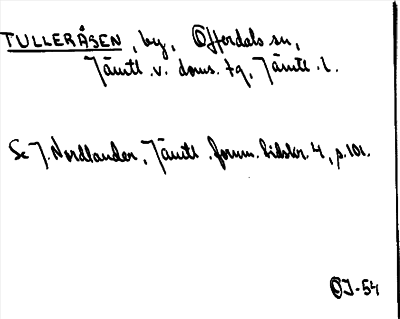 TULLERÅSEN, by, Offerdals sn,
Jämtl. v. doms. tg, Jämtl. l.
Se J. Nordlander, Jämtl. fornm. tidskr. 4, p. 101.
OJ-54